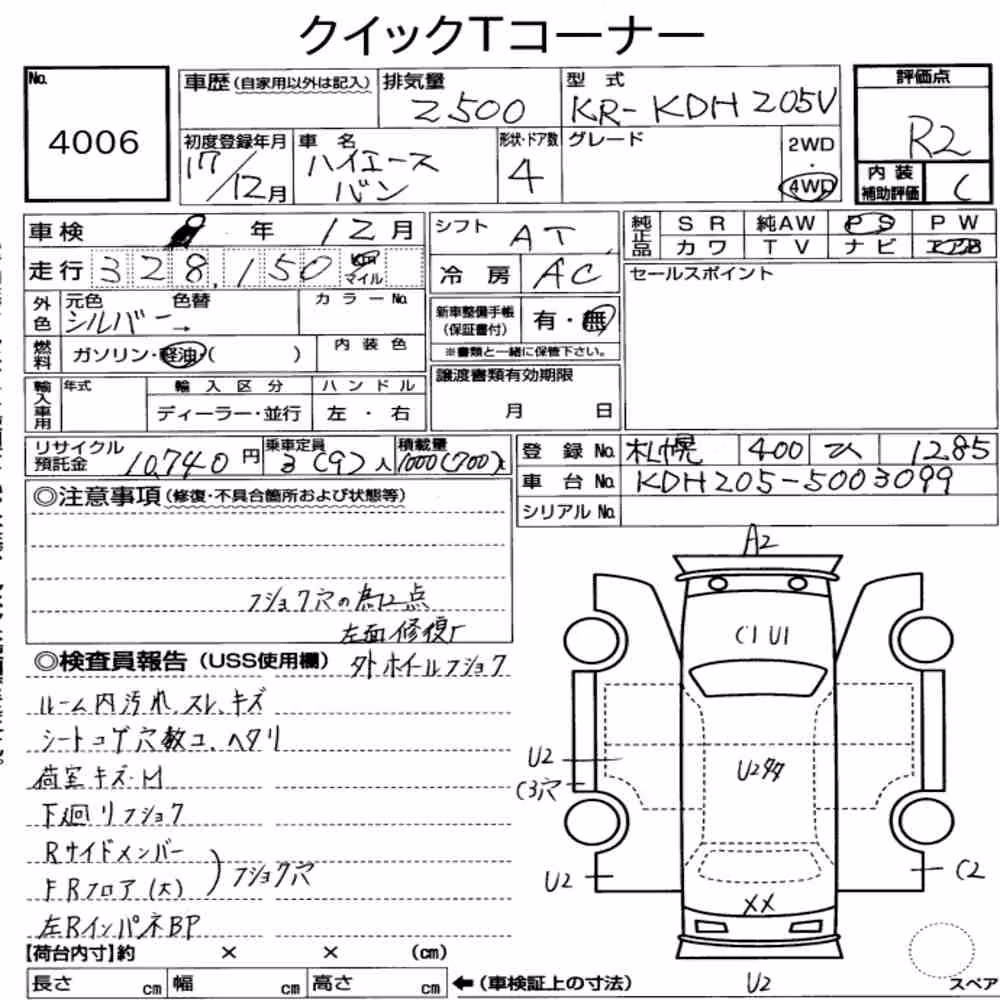 クイックTコーナー
No. 4006
車歴 (自家用以外は記入) 排気量 2500 型式 KR-KDH205V
評価点 R2
初度登録年月 17/12月 車名 ハイエースバン 形状・ドア数 4 グレード 2WD・4WD
内装補助評価 C
車検 年 12月 シフト AT
純正品 SR 純AW PS PW
カワ TV ナビ エアB
走行 328,150 マイル 冷房 AC
セールスポイント
外色 元色 シルバー 色替 → カラーNo.
新車整備手帳 (保証書付) 有・無
※書類と一緒に保管下さい。
燃料 ガソリン・軽油・( ) 内装色
譲渡書類有効期限 月 日
輸入車用 年式 輸入区分 ハンドル
ディーラー・並行 左・右
リサイクル預託金 10,740円 乗車定員 3(9)人 積載量 1000(700)k
登録No. 札幌 400 ひ 1285
車台No. KDH205-5003099
シリアルNo.
◎注意事項 (修復・不具合箇所および状態等)
フショク穴の為R2点
左面修復
◎検査員報告 (USS使用欄) 外ホイールフショク
ルーム内汚れ、スレ、キズ
シートコゲ穴数コ、ヘタリ
荷室キズ・凹
下廻リフショク
Rサイドメンバー
FRフロア(大) ) フショク穴
左RインパネBP
【荷台内寸】約 × × (cm)
長さ cm 幅 cm 高さ cm ←(車検証上の寸法)
A2
C1 U1
U2
C3穴
U2多
U2
C2
XX
U2
スペア